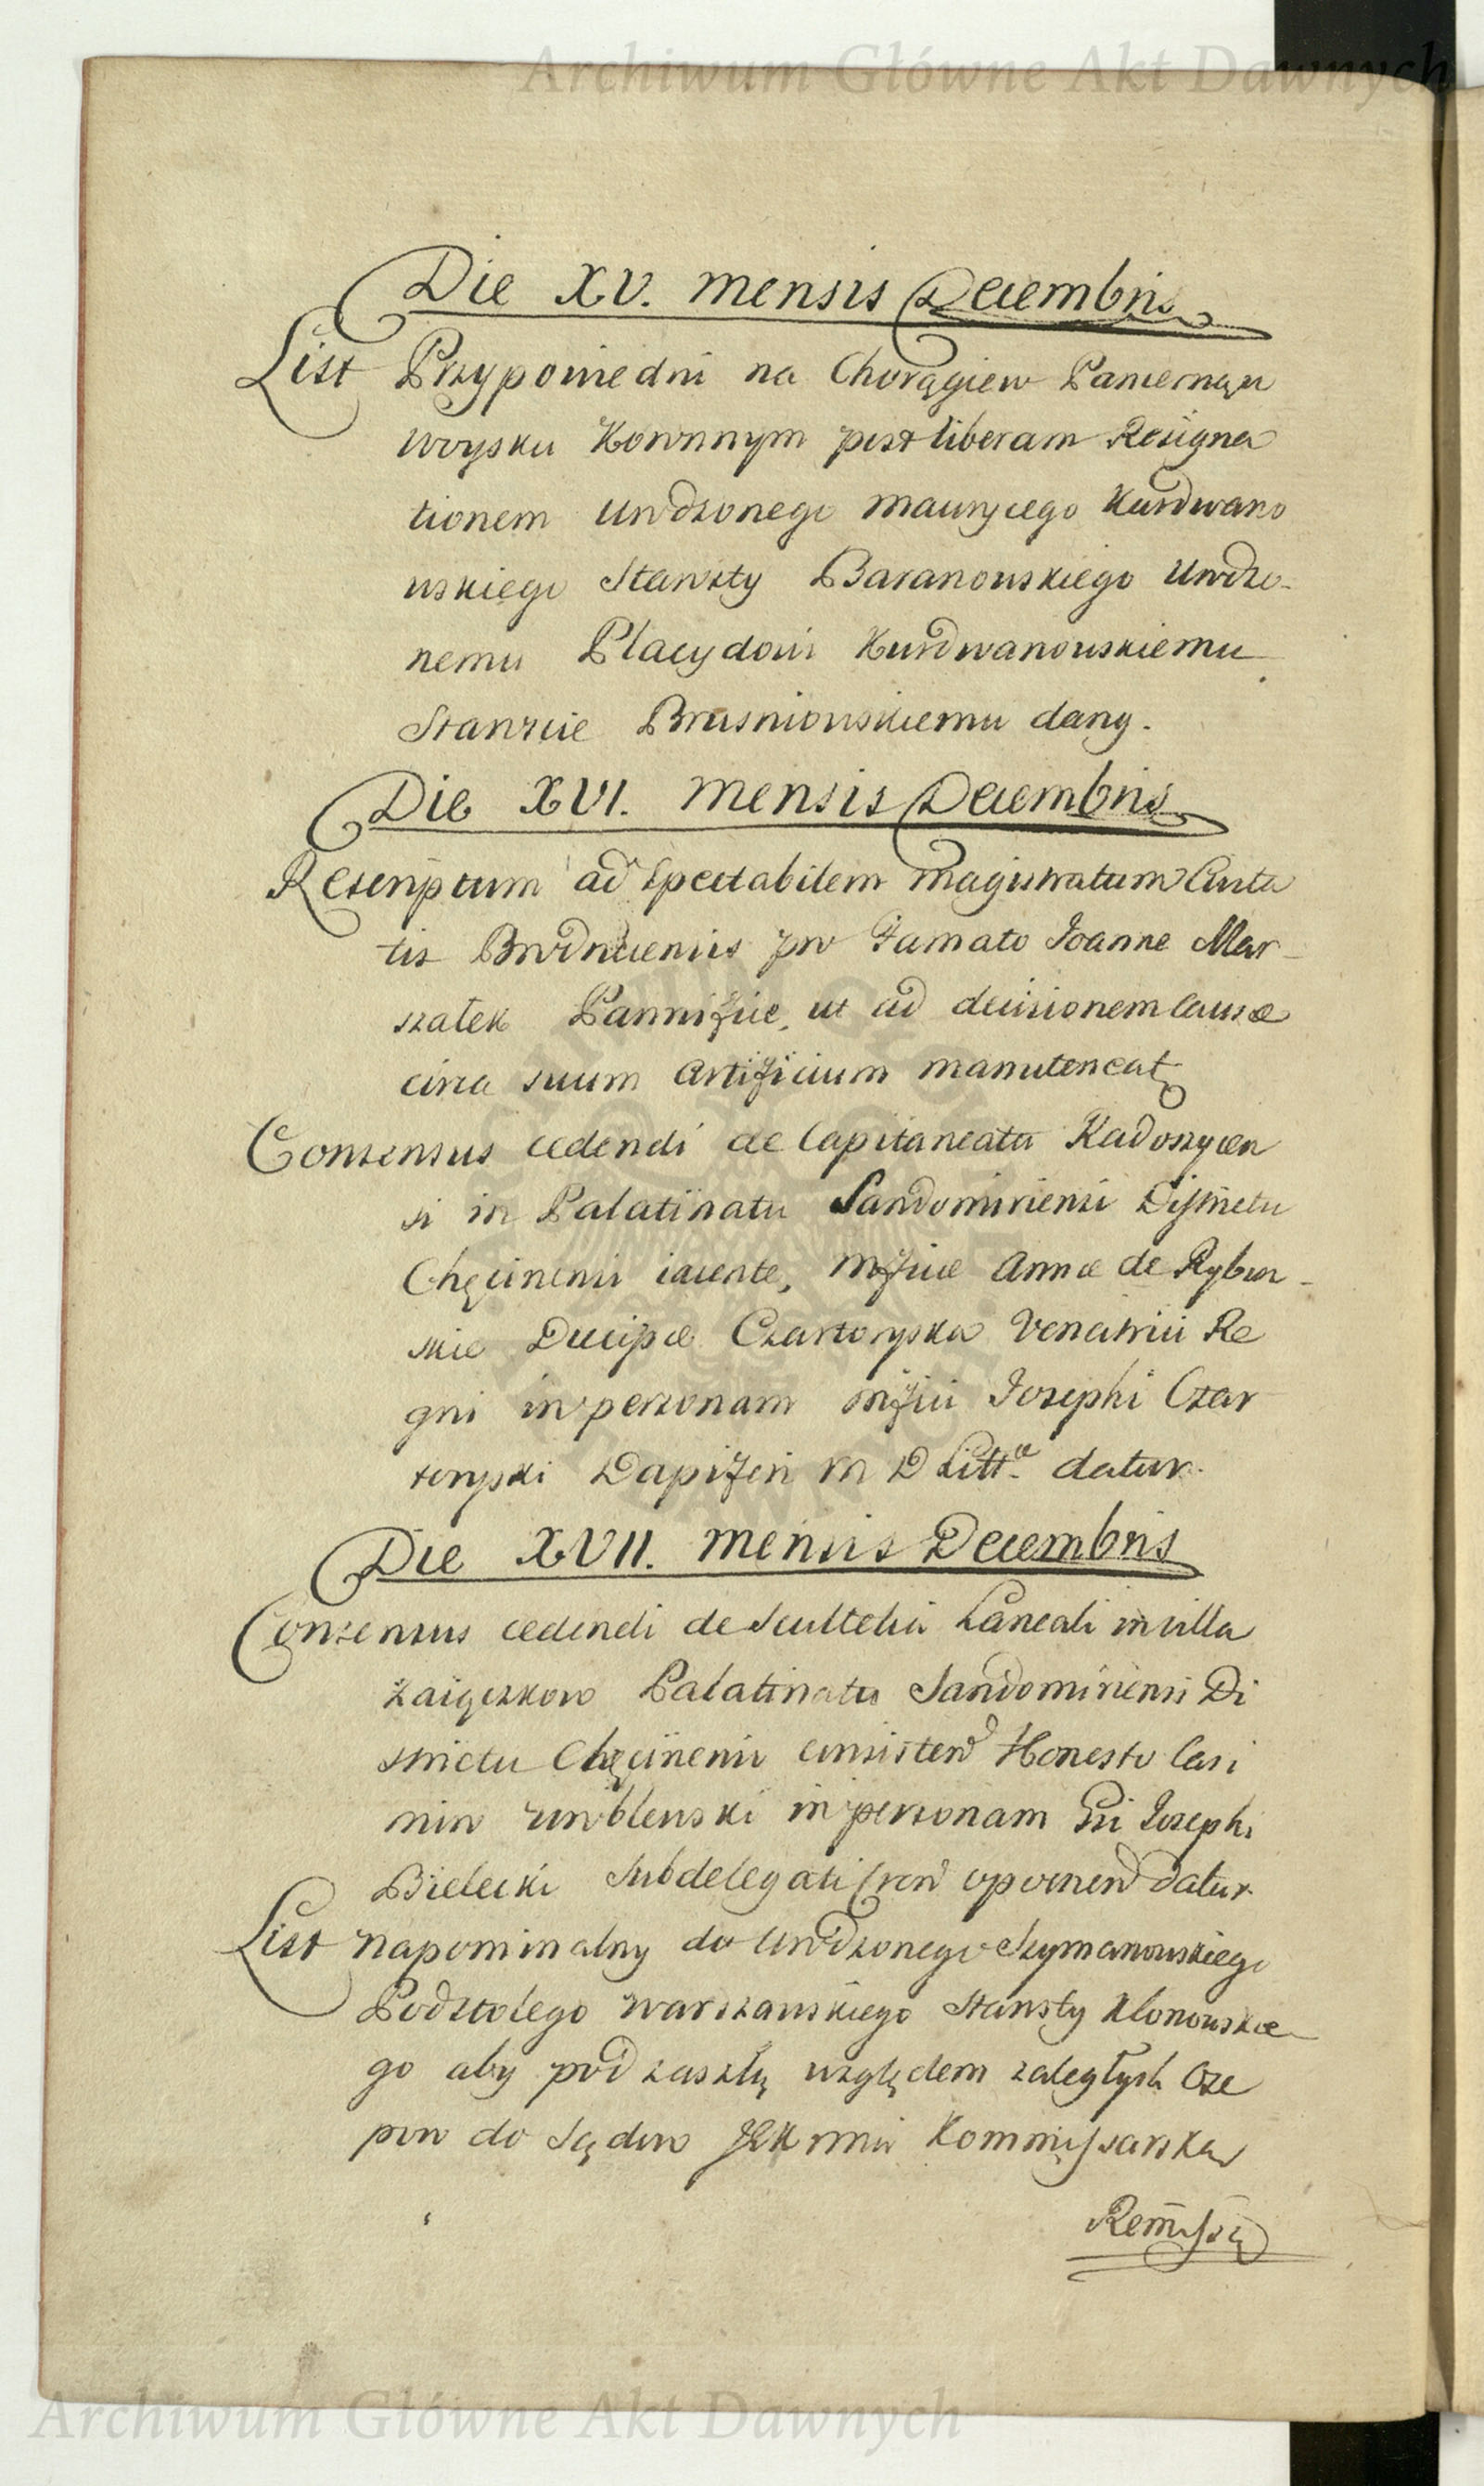 Archiwum Główne Akt Dawnych
Die XV. mensis Decembris
List Przypowiedni na Chorągiew Pancerną w
woysku Koronnym post liberam Resigna
tionem Urodzonego Maurycego Kurdwano
wskiego Starosty Baranowskiego Urodzo-
nemu Placydowi Kurdwanowskiemu
Staroście Brusniowskiemu dany.
Die XVI. mensis Decembris
Rescriptum ad Spectabilem Magistratum Civita
tis Brodnicensis pro Famato Joanne Mar-
szałek Pannifice, ut ad decisionem causæ
circa suum artificium manuteneat
Consensus cedendi de Capitaneatu Radoszycen
si in Palatinatu Sandomiriensi Districtu
Chęcinensi iacente, Mficæ Annæ de Rybin-
skie Ducipæ Czartoryska Venatrici Re
gni in personam Mfici Josephi Czar
toryski Dapiferi M D Litt.æ datur.
Die XVII. mensis Decembris
Consensus cedendi de Scultetia Laneali in villa
Zaiączkow Palatinatu Sandomiriensi Di
strictu Chęcinensi consisten Honesto Casi
miro Wroblewski in personam Gsi Josephi
Bielecki Subdelegati Cren opocnen datur.
List napominalny do Urodzonego Szymanowskiego
Podstolego Warszawskiego Starosty Klonowskie
go aby pod zaszłą względem zaległych Cze
pow do Sądow JKMmci Kommissarską
Remissą
Archiwum Główne Akt Dawnych